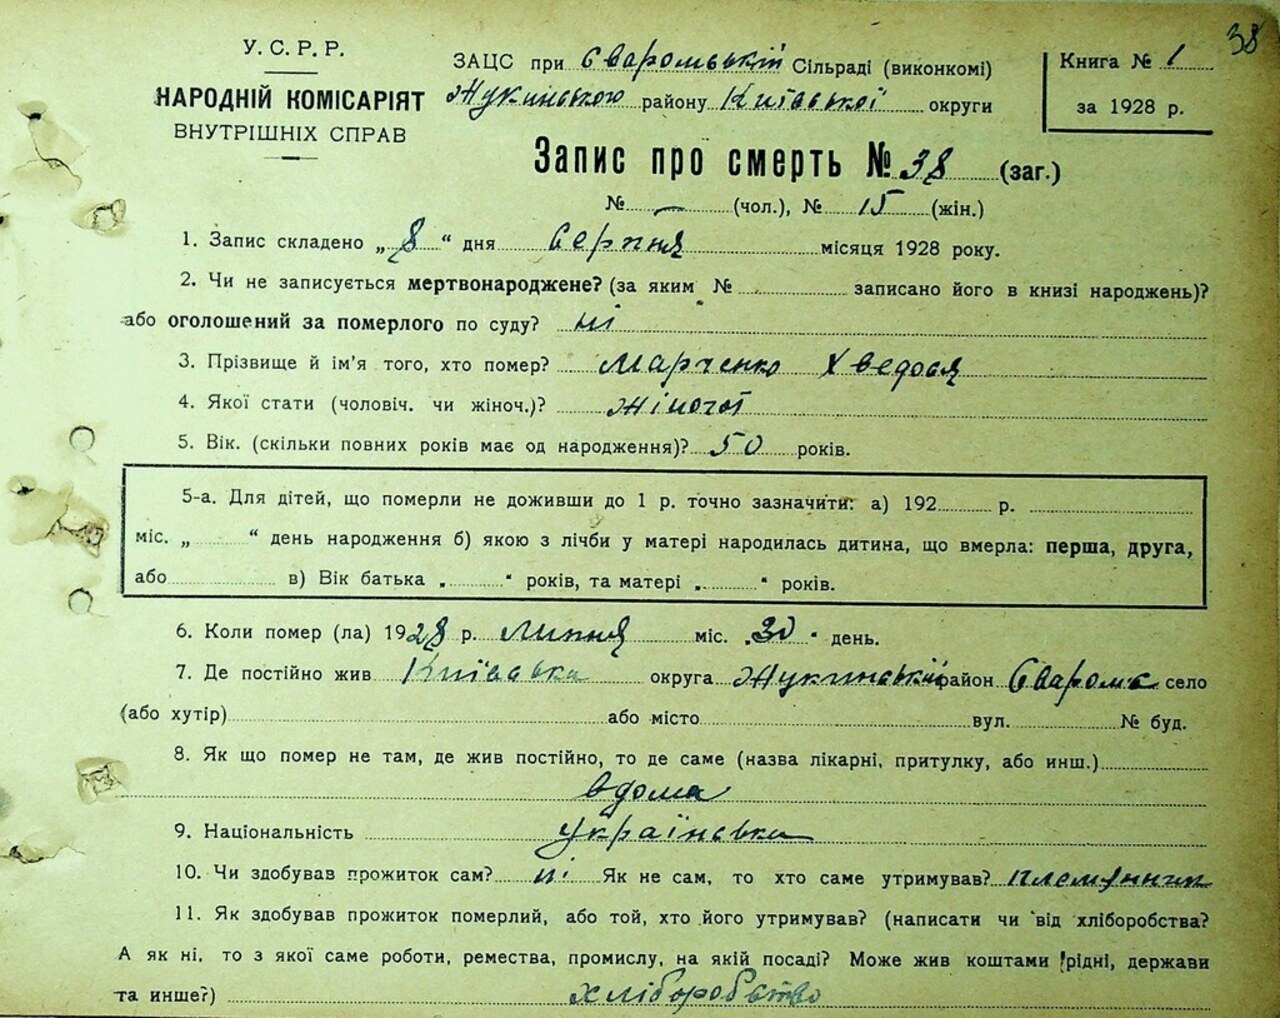 38
У. С. Р. Р.
НАРОДНІЙ КОМІСАРІЯТ
ВНУТРІШНІХ СПРАВ
ЗАЦС при Сваромській Сільраді (виконкомі)
Жукинського району Київської округи
Книга № 1
за 1928 р.
Запис про смерть № 38 (заг.)
№ — (чол.), № 15 (жін.)
1. Запис складено „ 8 “ дня Серпня місяця 1928 року.
2. Чи не записується мертвонароджене? (за яким № записано його в книзі народжень)?
або оголошений за померлого по суду? ні
3. Прізвище й ім'я того, хто помер? Марченко Хведося
4. Якої стати (чоловіч. чи жіноч.)? Жіночої
5. Вік. (скільки повних років має од народження)? 50 років.
5-а. Для дітей, що померли не доживши до 1 р. точно зазначити: а) 192 р.
міс. „ “ день народження б) якою з лічби у матері народилась дитина, що вмерла: перша, друга,
або в) Вік батька „ “ років, та матері „ “ років.
6. Коли помер (ла) 1928 р. Липня міс. „30“ день.
7. Де постійно жив Київська округа Жукинський район Сваром'є село
(або хутір) або місто вул. № буд.
8. Як що помер не там, де жив постійно, то де саме (назва лікарні, притулку, або инш.)
вдома
9. Національність українська
10. Чи здобував прожиток сам? ні Як не сам, то хто саме утримував? племінник
11. Як здобував прожиток померлий, або той, хто його утримував? (написати чи від хліборобства?
А як ні, то з якої саме роботи, ремества, промислу, на якій посаді? Може жив коштами рідні, держави
та инше?) хліборобство